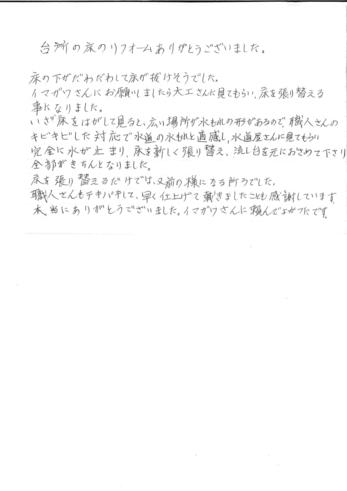 台所の床のリフォームありがとうございました。
床の下がだわだわして床が抜けそうでした。
イマガワさんにお願いしましたら大工さんに見てもらい、床を張り替える
事になりました。
いざ床をはがして見ると、広い場所が水もれの形があるので、職人さんの
キビキビした対応で水道の水もれと直感し、水道屋さんに見てもらい
完全に水が止まり、床を新しく張り替え、流し台を元におさめて下さり
全部がきちんとなりました。
床を張り替えるだけでは、又前の様になる所でした。
職人さんもテキパキして、早く仕上げて戴きましたことも感謝しています
本当にありがとうございました。イマガワさんに頼んでよかったです。